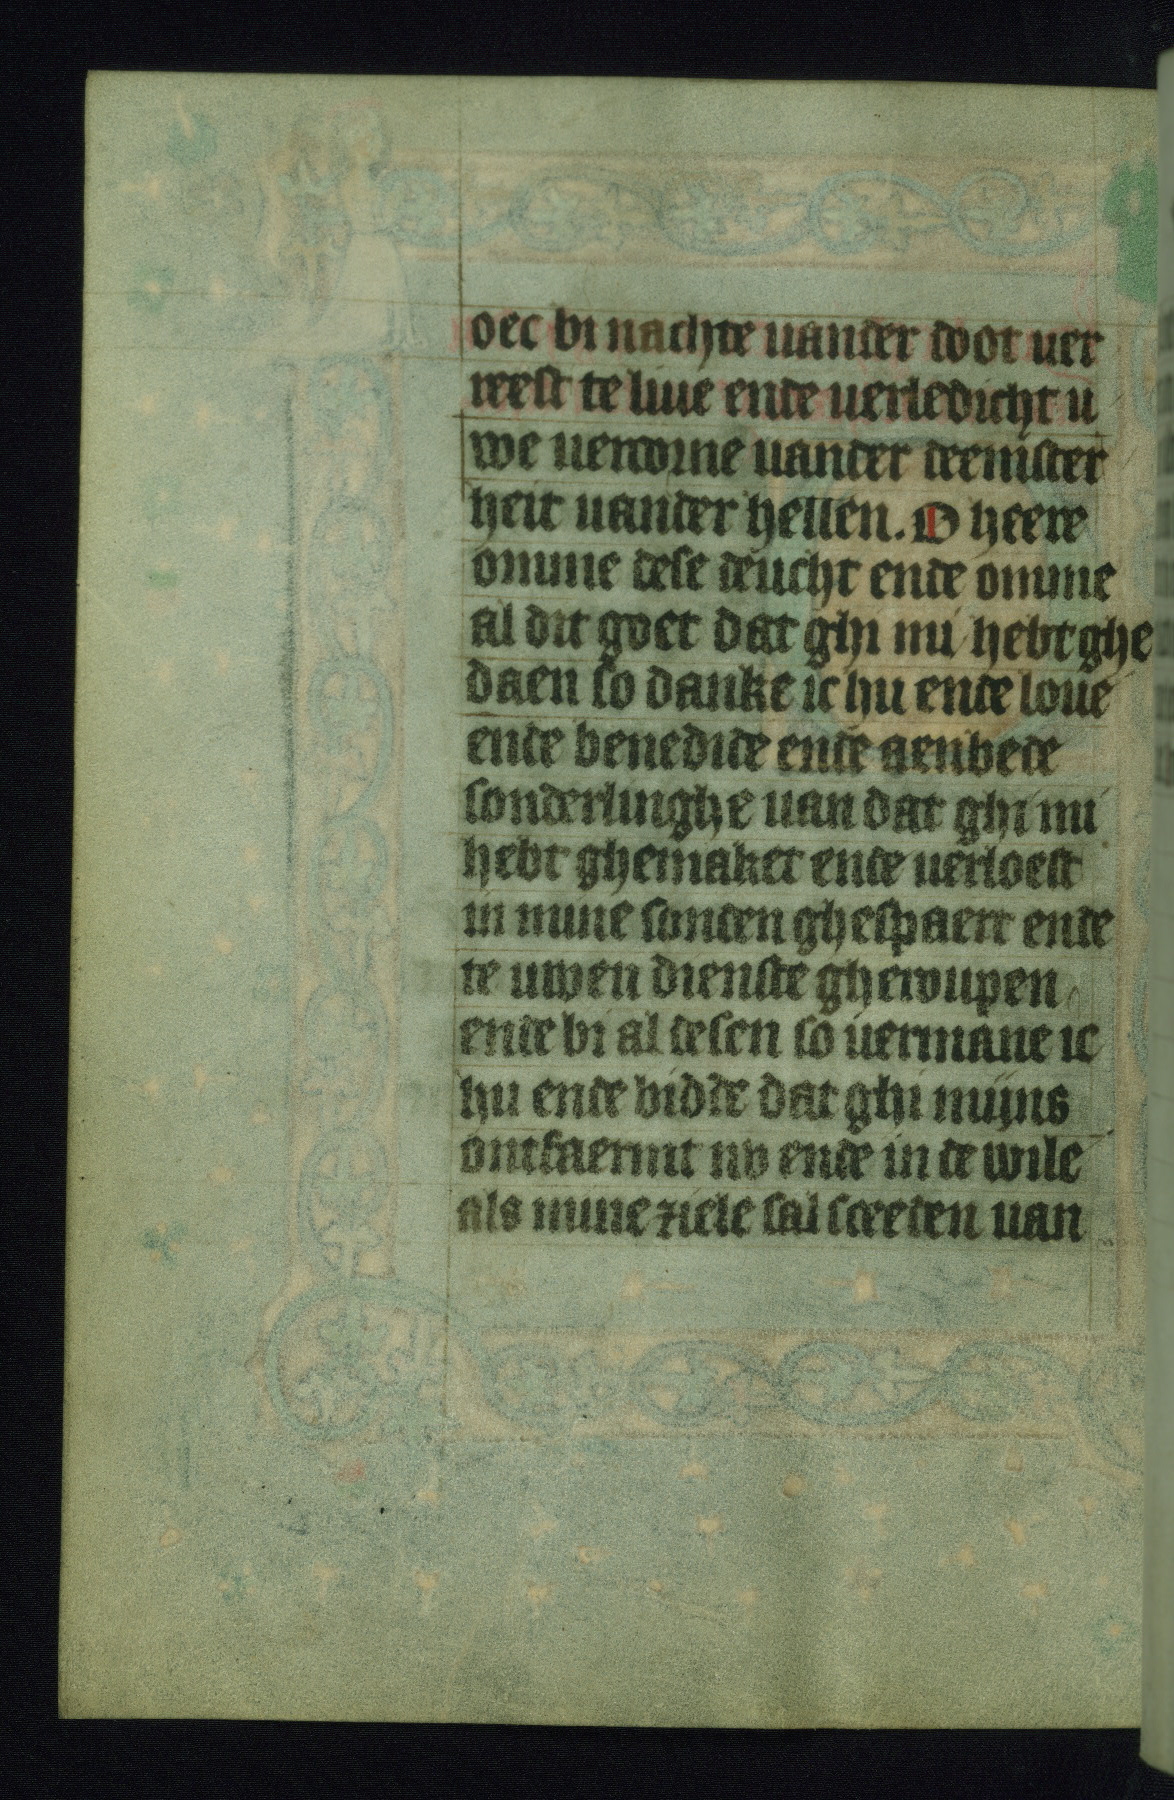 oec bi nachte uander doot uer
reest te liue ende uerledicht u
we uercorne uander deemster
heit uander hellen. O heere
omme dese deucht ende omme
al dit goet dat ghi mi hebt ghe
daen so danke ic hu ende loue
ende benedide ende aenbede
sonderlinghe uan dat ghi mi
hebt ghemaket ende uerloest
in mine sonden ghespaert ende
te uwen dienste gheroupen
ende bi al desen so uermane ic
hu ende bidde dat ghi mijns
ontfaermt nv ende in de wile
als mine ziele sal sceeden uan